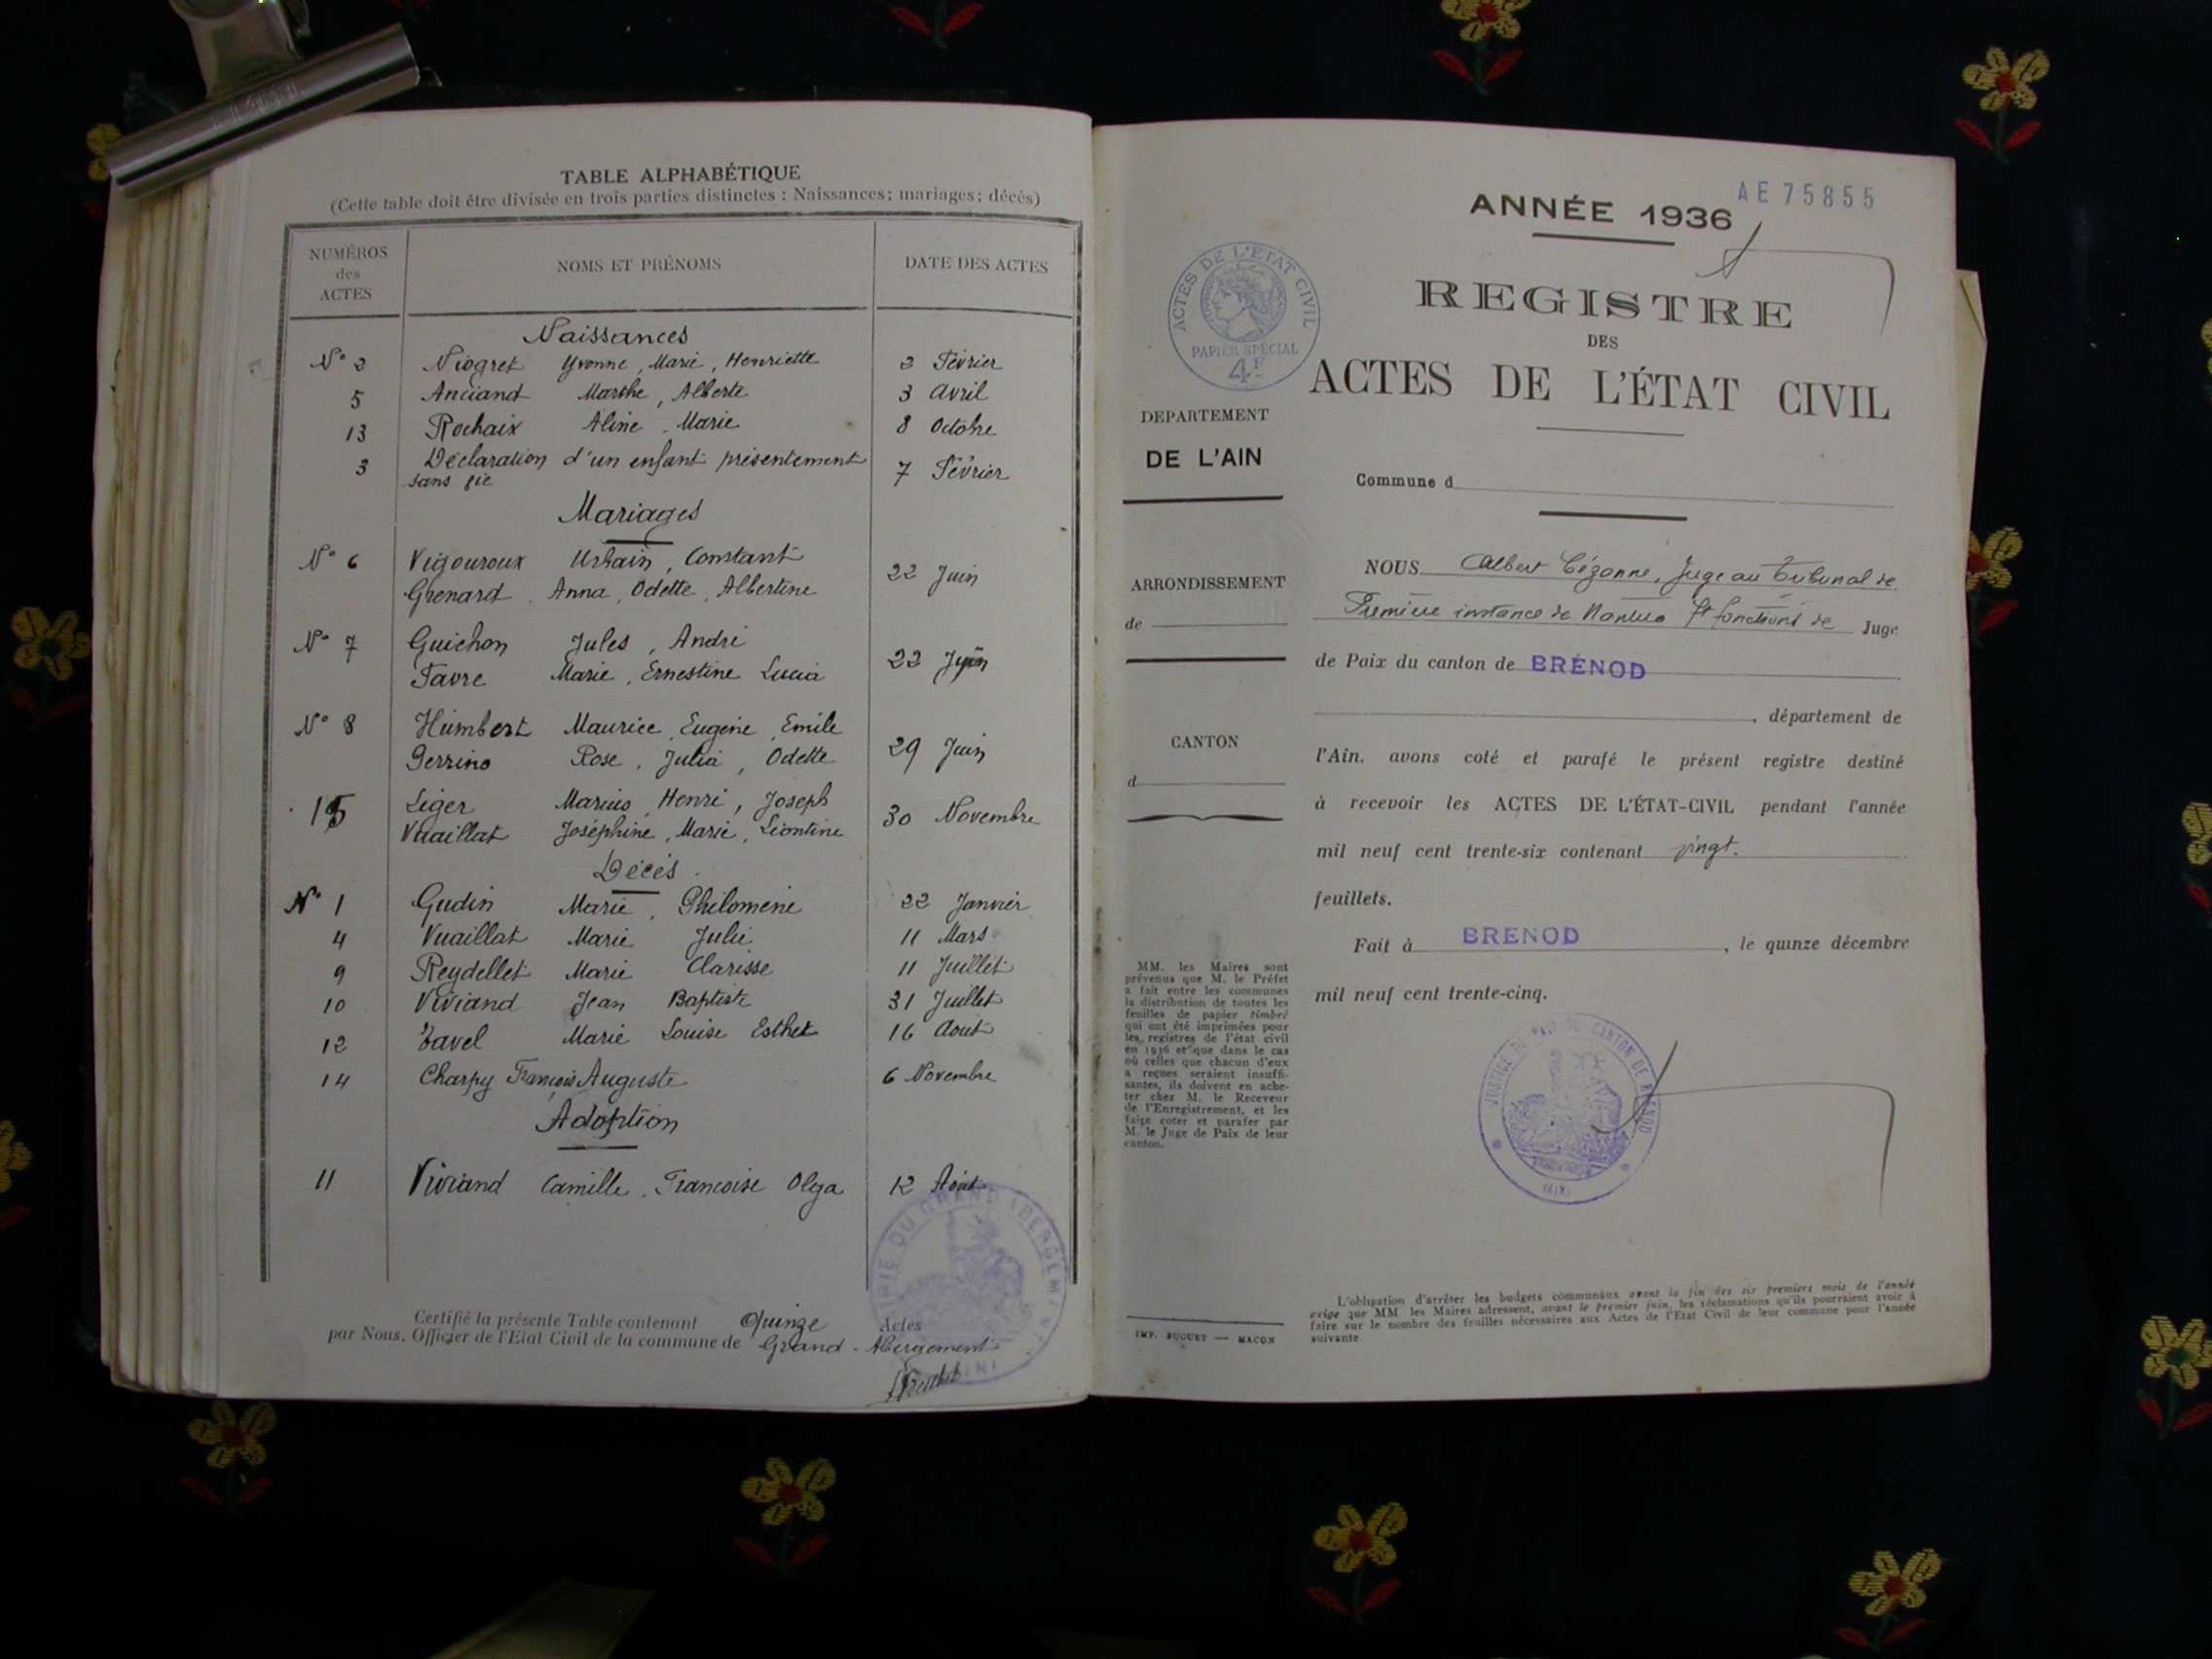 TABLE ALPHABÉTIQUE
(Cette table doit être divisée en trois parties distinctes : Naissances; mariages; décès)
NUMÉROS
des
ACTES
NOMS ET PRÉNOMS
DATE DES ACTES
Naissances
N° 2 Niogret Yvonne, Marie, Henriette 2 Février
5 Anciand Marthe, Alberte 3 Avril
13 Rochaix Aline, Marie 8 Octobre
3 Déclaration d'un enfant présentement 7 Février
sans vie
Mariages
N° 6 Vigouroux Urbain, Constant
Grenard Anna, Odette, Albertine 22 Juin
N° 7 Guichon Jules, André
Favre Marie, Ernestine Lucia 22 Juin
N° 8 Humbert Maurice, Eugène, Emile
Perrino Rose, Julia, Odette 29 Juin
15 Liger Marius, Henri, Joseph
Vuaillat Joséphine, Marie, Léontine 30 Novembre
Décès
N° 1 Gudin Marie, Philomène 22 Janvier
4 Vuaillat Marie Julie 11 Mars
9 Reydellet Marie Clarisse 11 Juillet
10 Viviand Jean Baptiste 31 Juillet
12 Tavel Marie Louise Esther 16 Aout
14 Charpy François Auguste 6 Novembre
Adoption
11 Viviand Camille, Francoise Olga 12 Août
MAIRIE DU GRAND ABERGEMENT
(AIN)
Certifié la présente Table contenant Quinze Actes
par Nous, Officier de l'Etat Civil de la commune de Grand-Abergement
AE 75855
ANNÉE 1936
ACTES DE L'ÉTAT CIVIL
PAPIER SPÉCIAL
4F
REGISTRE
DES
ACTES DE L'ÉTAT CIVIL
DEPARTEMENT
DE L'AIN
Commune d
ARRONDISSEMENT
de
CANTON
d
NOUS Albert Cézanne, Juge au Tribunal de
Première instance de Nantua ft fonctions de Juge
de Paix du canton de BRÉNOD
, département de
l'Ain, avons coté et parafé le présent registre destiné
à recevoir les ACTES DE L'ÉTAT-CIVIL pendant l'année
mil neuf cent trente-six contenant vingt.
feuillets.
Fait à BRENOD, le quinze décembre
mil neuf cent trente-cinq.
JUSTICE DE PAIX DU CANTON DE BRENOD
(AIN)
MM. les Maires sont
prévenus que M. le Préfet
a fait entre les communes
la distribution de toutes les
feuilles de papier timbré
qui ont été imprimées pour
les registres de l'état civil
en 1936 et que dans le cas
où celles que chacun d'eux
a reçues seraient insuffi-
santes, ils doivent en ache-
ter chez M. le Receveur
de l'Enregistrement, et les
faire coter et parafer par
M. le Juge de Paix de leur
canton.
IMP. BUGUET — MACON
L'obligation d'arrêter les budgets communaux avant la fin des six premiers mois de l'année
exige que MM. les Maires adressent, avant le premier juin, les réclamations qu'ils pourraient avoir à
faire sur le nombre des feuilles nécessaires aux Actes de l'Etat Civil de leur commune pour l'année
suivante